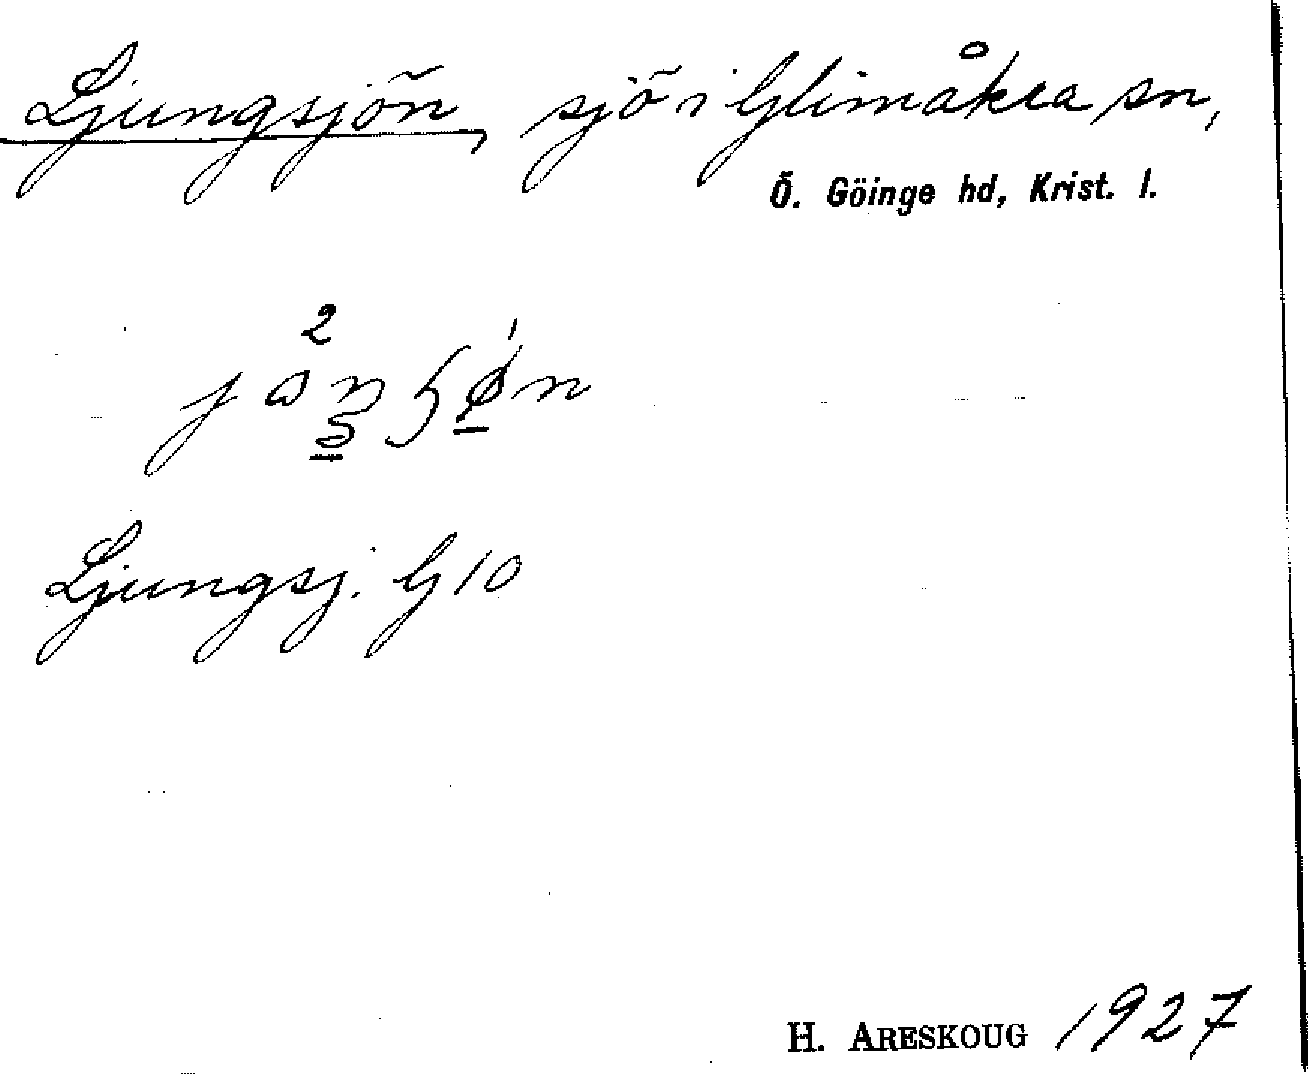 Ljungsjön, sjö i Glimåkra sn,
Ö. Göinge hd, Krist. l.
Ljungsj. G 10
H. ARESKOUG 1927